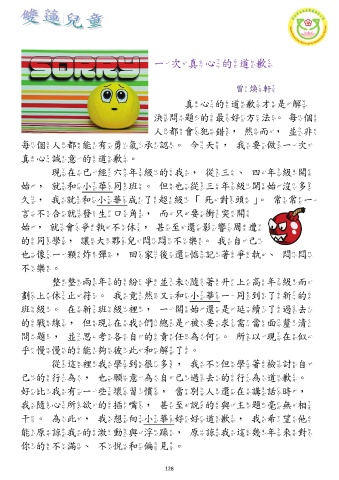 雙蓮兒童
SORRY
一次真心的道歉
曾煥軒
真心的道歉才是解
決問題的最好方法。每個
人都會犯錯，然而，並非
每個人都能有勇氣承認。今天，我要做一次
真心誠意的道歉。
現在已經六年級的我，從三、四年級開
始，就和小華同班。但也從三年級開始沒多
久，我就和小華成了超級「死對頭」。常常一
言不合就發生口角，而只要衝突開
始，就會爭執不休，甚至還影響周遭
的同學，讓大夥兒悶悶不樂。我自己
也像一顆炸彈，回家後還惦記著爭執、悶悶
不樂。
整整兩年的紛爭並未隨著升上高年級而
劃上休止符。我竟然又和小華一同到了新的
班級。在新班級裡，一開始還是延續了過去
的戰線，但現在我們總是被要求需當面釐清
問題，並思考各自的責任為何。所以現在似
乎慢慢的能夠彼此和解了。
從這裡我學到很多，我不但學著檢討自
己的行為，也願意為自己過去的行為道歉。
好比我有一些壞習慣，當別人還在講話時，
我隨心所欲的插嘴，甚至說的與主題毫無相
干。為此，我想向小華好好道歉，我希望他
能原諒我的激動與浮躁，原諒我這幾年來對
你的不滿、不悅和偏見。
128